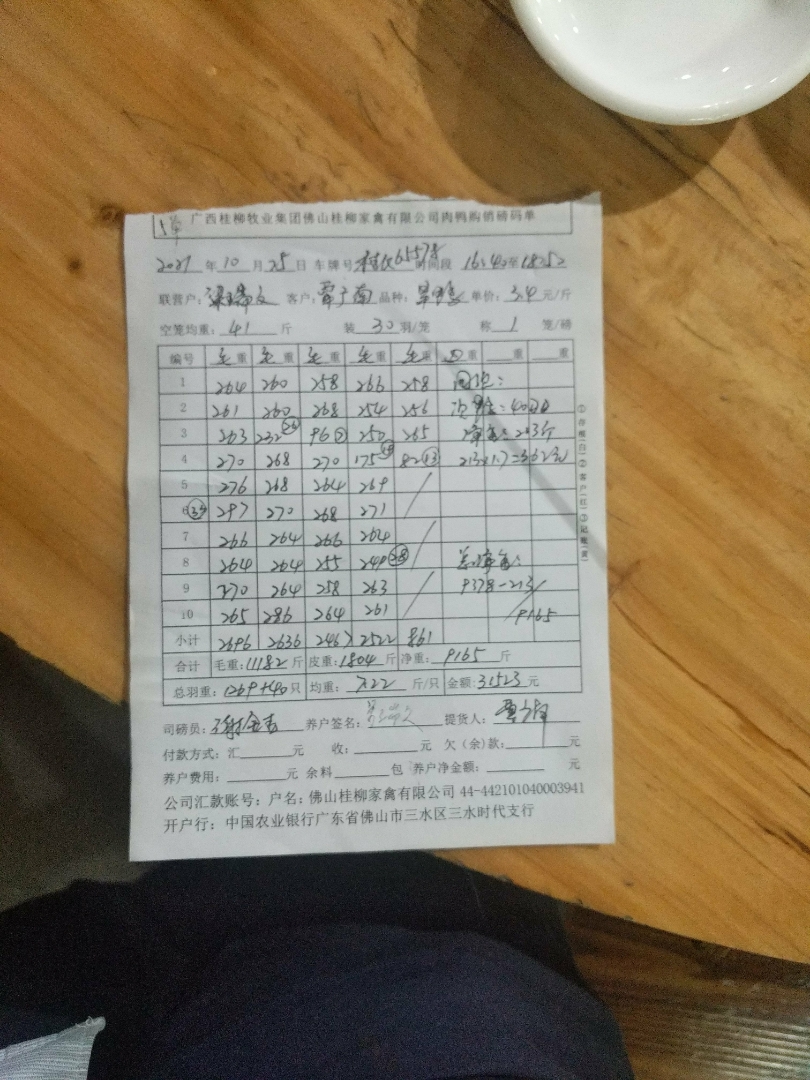 广西桂柳牧业集团佛山桂柳家禽有限公司肉鸭购销磅码单
2021 年 10 月 25 日 车牌号 时间段 16:40至18:52
联营户: 客户: 覃广南 品种: 单价: 3.4 元/斤
空笼均重: 41 斤 装 30 羽/笼 称 1 笼/磅
编号 毛重 毛重 毛重 毛重 毛重 重 重 重
1 264 260 258 266 258
2 261 260 268 254 256 40
3 263 232 96 250 265 213斤
4 270 268 270 175 82 (13) 213×1.7=362元
5 276 268 264 269
6 297 270 268 271
7 266 264 266 264
8 264 264 255 249 (28) 总净重:
9 270 264 258 263 9378-213
10 265 286 264 261 9165
小计 2696 2636 2467 2522 861
合计 毛重: 11182 斤 皮重: 1804 斤 净重: 9165 斤
总羽重: 1269+40 只 均重: 7.22 斤/只 金额: 31523 元
司磅员: 养户签名: 提货人:
付款方式: 汇 元 收: 元 欠(余)款: 元
养户费用: 元 余料 包 养户净金额: 元
公司汇款账号: 户名: 佛山桂柳家禽有限公司 44-442101040003941
开户行: 中国农业银行广东省佛山市三水区三水时代支行
①存根(白)②客户(红)③记账(黄)